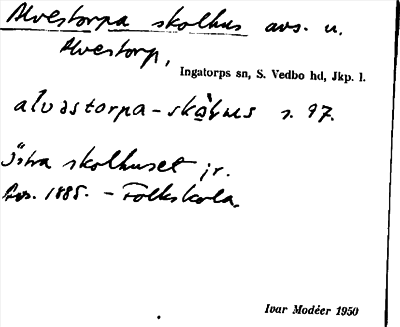 Alvestorpa skolhus avs. u.
Alvestorp,
Ingatorps sn, S. Vedbo hd, Jkp. l.
alvastorpa-skɷ̀lhus s. 97.
Östra skolhuset jr.
Avs. 1885. – Folkskola.
Ivar Modéer 1950